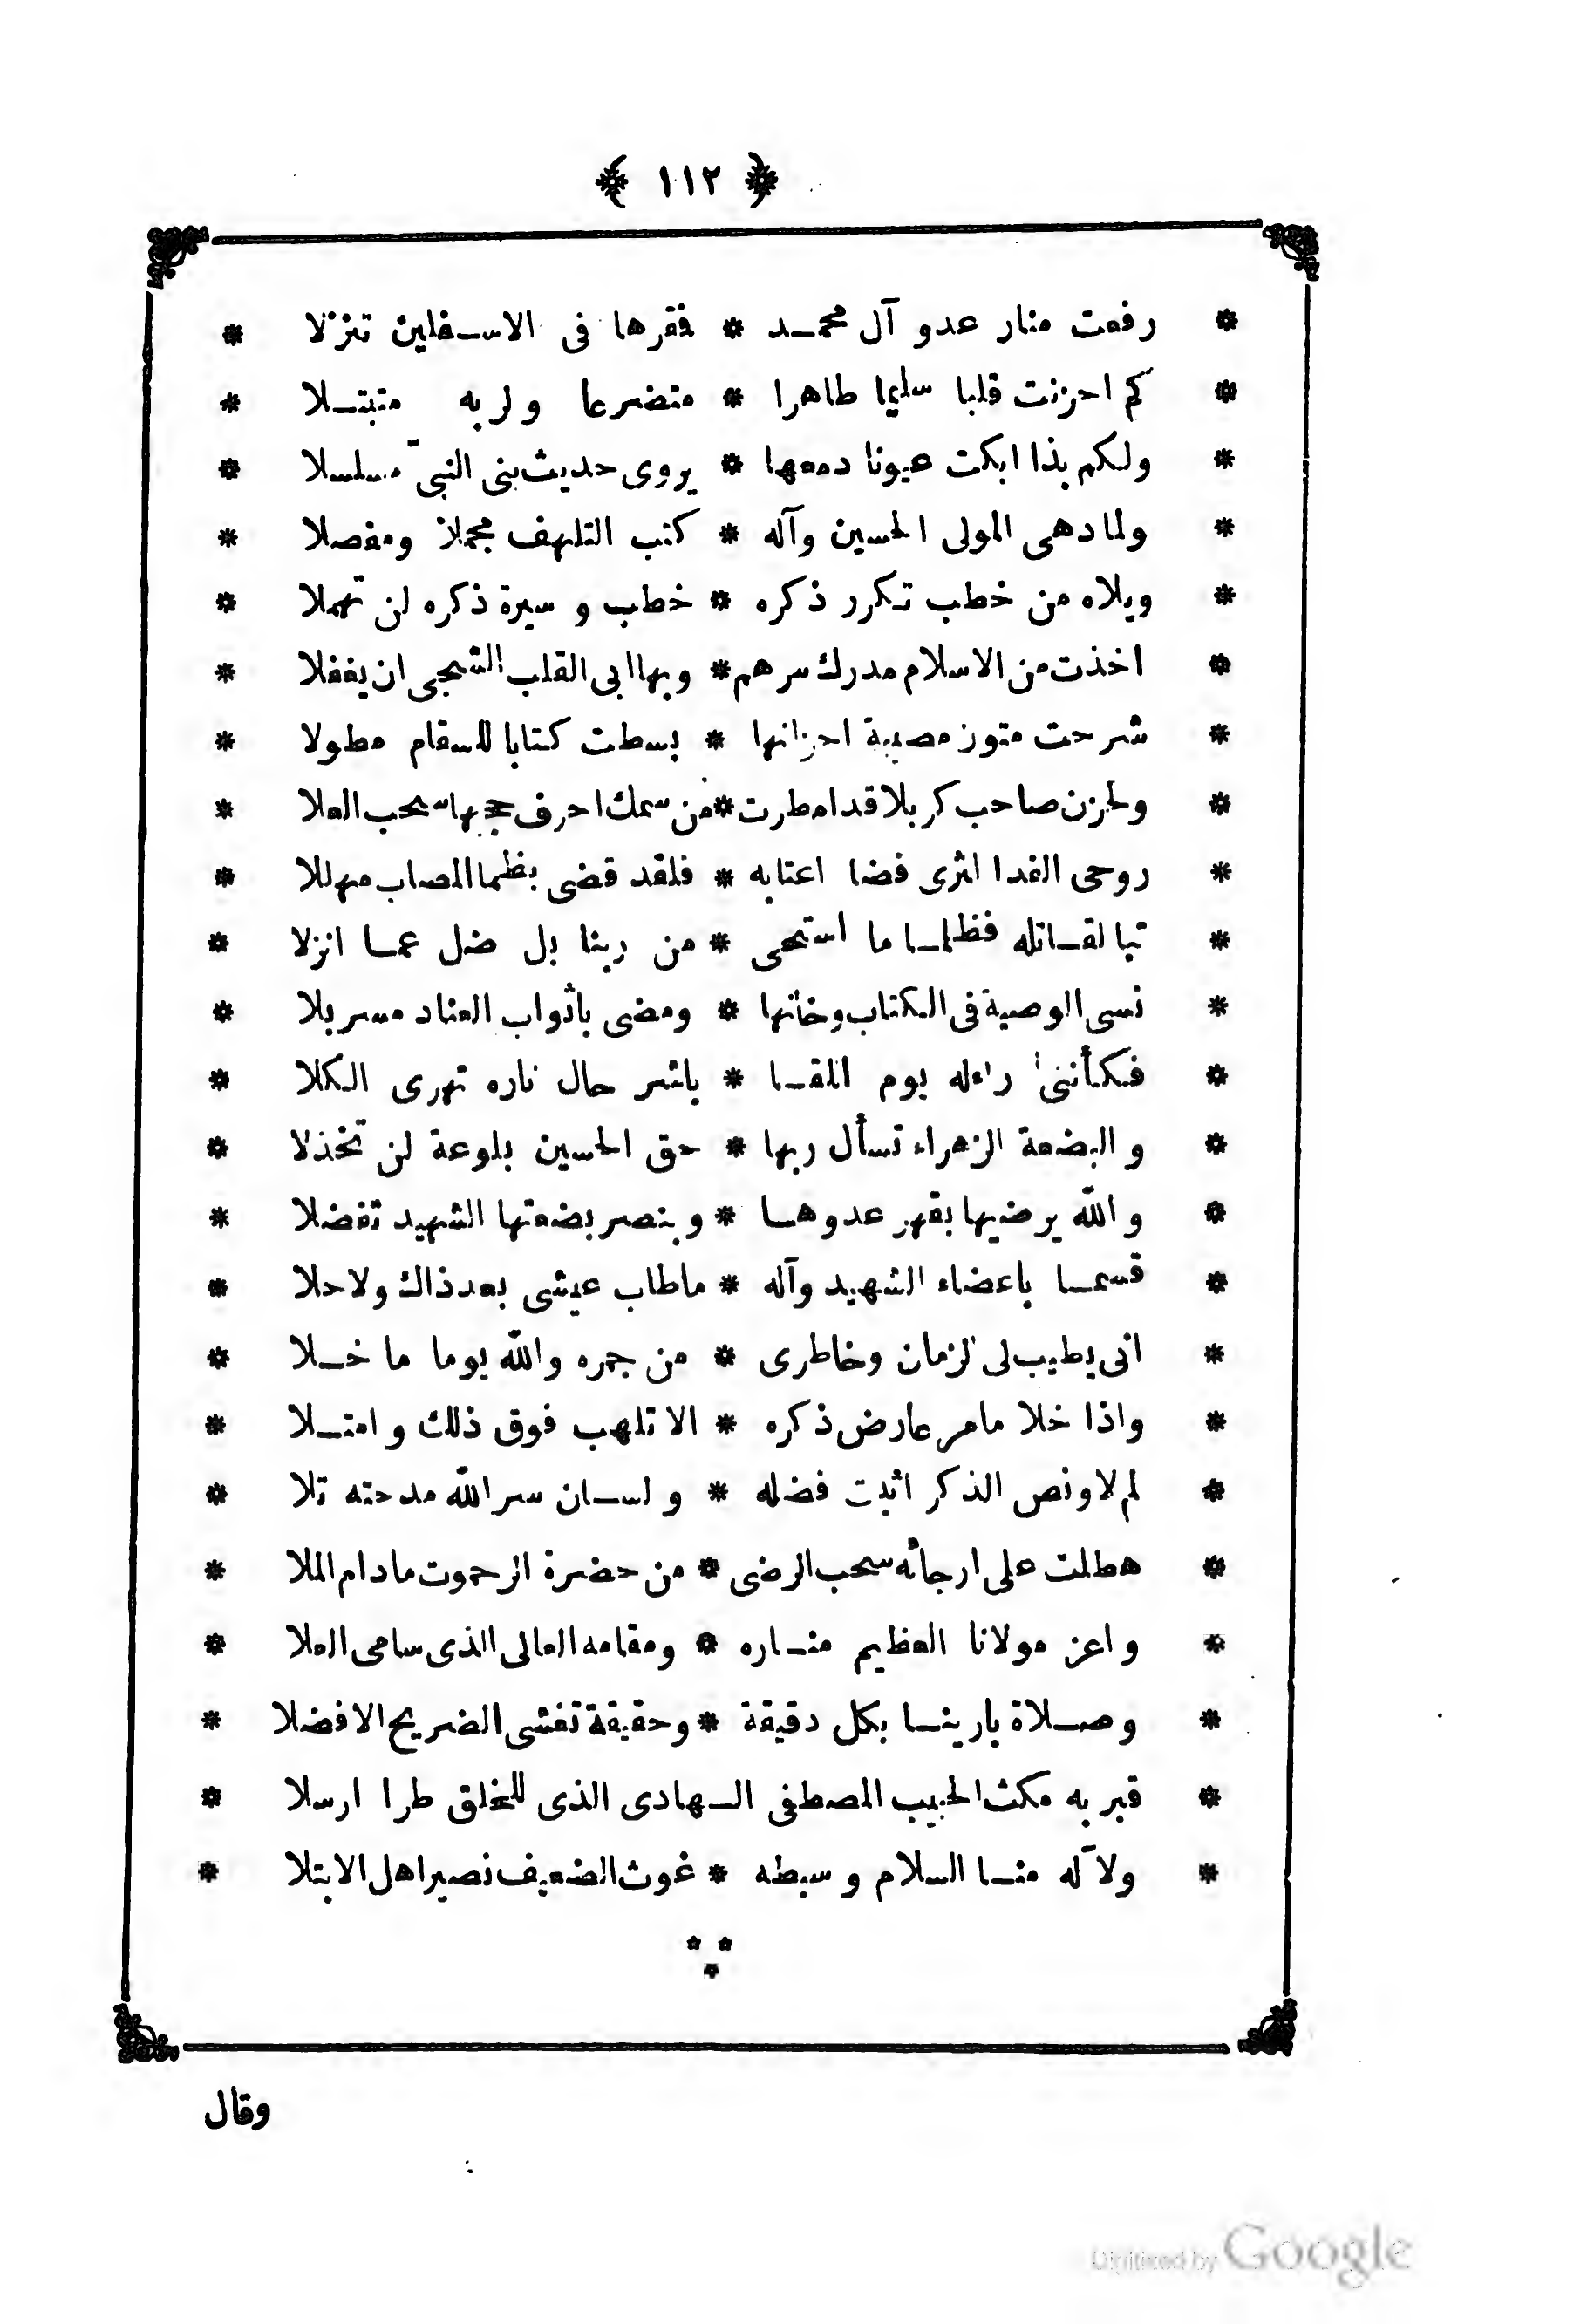 ﴿ ١١٢ ﴾
* رفعت منار عدو آل محمـد * فقرها فى الاسـفلين تنزلا *
* كم احزنت قلبا سليما طاهرا * متضرعا ولربه متبتـلا *
* ولكم بذا ابكت عيونا دمعها * يروى حديث بنى النبىّ مسلسلا *
* ولما دهى المولى الحسين وآله * كتب التلهف مجملا ومفصلا *
* ويلاه من خطب تكرر ذكره * خطب و سيرة ذكره لن تهملا *
* اخذت من الاسلام مدرك سرهم * وبها ابى القلب الشجى ان يغفلا *
* شرحت متون مصيبة احزانها * بسطت كتابا للسقام مطولا *
* ولحزن صاحب كربلا قد امطرت * من سمك احرف حجبها سحب العلا *
* روحى الفدا لثرى فضا اعتابه * فلقد قضى بظما المصاب مهللا *
* تبا لقـاتله فظلمـا ما استحى * من ربنا بل ضل عمـا انزلا *
* نسى الوصية فى الكتاب وخانها * ومضى باثواب العناد مسربلا *
* فكأننى راءله يوم اللقـا * باشر حال ناره تهرى الكلا *
* و البضعة الزهراء تسأل ربها * حق الحسين بلوعة لن تخذلا *
* و الله يرضيها بقهر عدوهـا * وبنصر بضعتها الشهيد تفضلا *
* قسمـا باعضاء الشهيد وآله * ماطاب عيشى بعد ذاك ولا حلا *
* انى يطيب لى الزمان وخاطرى * من جمره والله يوما ما خـلا *
* واذا خلا مامر عارض ذكره * الا تلهب فوق ذلك و امتـلا *
* لم لا ونص الذكر اثبت فضله * و لسـان سر الله مدحته تلا *
* هطلت على ارجائه سحب الرضى * من حضرة الرحموت مادام الملا *
* و اعز مولانا العظيم منـاره * ومقامه العالى الذى سامى العلا *
* وصـلاة بارينـا بكل دقيقة * وحقيقة تغشى الضريح الافضلا *
* قبر به مكث الحبيب المصطفى الـهادى الذى للخلق طرا ارسلا *
* ولآله منـا السلام و سبطه * غوث الضعيف نصير اهل الابتلا *
* * *
وقال
Digitized by Google